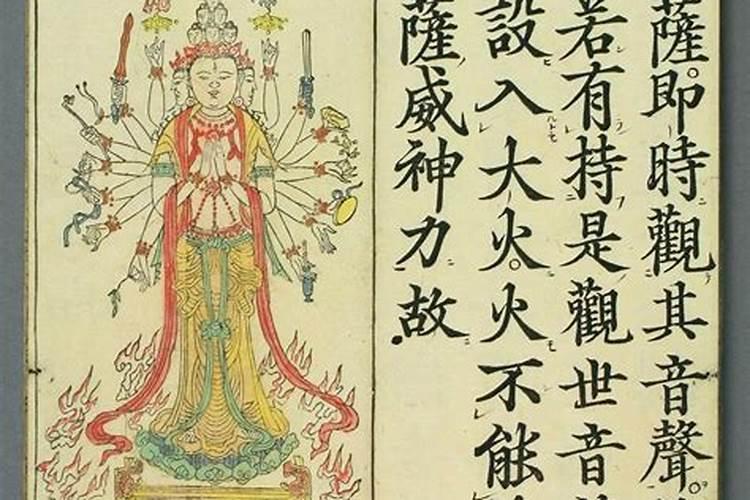 薩。即時觀其音聲。
若有持是觀世音
設入大火。火不能
薩威神力故